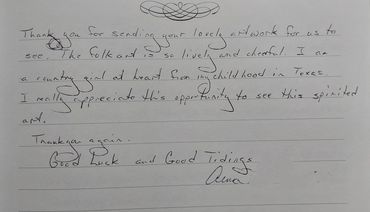 Thank you for sending your lovely artwork for us to
see. The folk art is so lively and cheerful I am
a country girl at heart from my childhood in Texas
I really appreciate this opportunity to see this spirited
art.
Thank you again.
Good Luck and Good Tidings